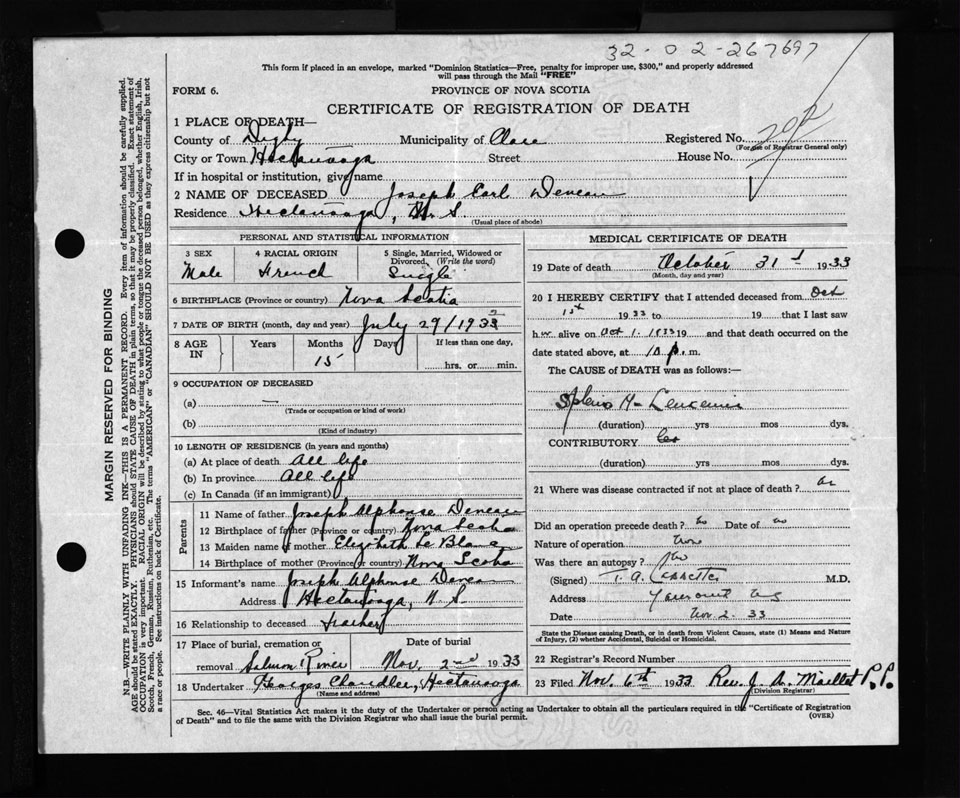 32-02-267697
This form if placed in an envelope, marked "Dominion Statistics—Free, penalty for improper use, $300," and properly addressed
will pass through the Mail "FREE"
FORM 6. PROVINCE OF NOVA SCOTIA
CERTIFICATE OF REGISTRATION OF DEATH
1 PLACE OF DEATH—
County of Digby Municipality of Clare Registered No.
(For use of Registrar General only)
City or Town Hectanooga Street House No.
If in hospital or institution, give name
2 NAME OF DECEASED Joseph Earl Deveau
Residence Hectanooga, N. S.
(Usual place of abode)
PERSONAL AND STATISTICAL INFORMATION
3 SEX 4 RACIAL ORIGIN 5 Single, Married, Widowed or
Divorced, (Write the word)
Male French Single
6 BIRTHPLACE (Province or country) Nova Scotia
7 DATE OF BIRTH (month, day and year) July 29/1932
8 AGE IN Years Months Days If less than one day,
15 hrs. or min.
9 OCCUPATION OF DECEASED
(a) —
(Trade or occupation or kind of work)
(b)
(Kind of industry)
10 LENGTH OF RESIDENCE (in years and months)
(a) At place of death All life
(b) In province All life
(c) In Canada (if an immigrant)
Parents
11 Name of father Joseph Alphonse Deveau
12 Birthplace of father (Province or country) Nova Scotia
13 Maiden name of mother Elizabeth Le Blanc
14 Birthplace of mother (Province or country) Nova Scotia
15 Informant's name Joseph Alphonse Deveau
Address Hectanooga, N. S.
16 Relationship to deceased Father
17 Place of burial, cremation or Date of burial
removal Salmon River Nov. 2nd 1933
18 Undertaker Georges Chandler, Hectanooga
(Name and address)
MEDICAL CERTIFICATE OF DEATH
19 Date of death October 31st 1933
(Month, day and year)
20 I HEREBY CERTIFY that I attended deceased from Oct
1st 1933 to 19 that I last saw
h alive on Oct 1. 1933 19 and that death occurred on the
date stated above, at 10 p. m.
The CAUSE of DEATH was as follows:—
Leucemia
(duration) yrs mos dys.
CONTRIBUTORY
(duration) yrs mos dys.
21 Where was disease contracted if not at place of death?
Did an operation precede death? no Date of no
Nature of operation
Was there an autopsy? No
(Signed) T. A. M.D.
Address Yarmouth N.S.
Date Nov 2. 33
State the Disease causing Death, or in death from Violent Causes, state (1) Means and Nature
of Injury, (2) whether Accidental, Suicidal or Homicidal.
22 Registrar's Record Number
23 Filed Nov. 6th 1933 Rev. J. A. Maillet P.P.
(Division Registrar)
Sec. 46—Vital Statistics Act makes it the duty of the Undertaker or person acting as Undertaker to obtain all the particulars required in the "Certificate of Registration
of Death" and to file the same with the Division Registrar who shall issue the burial permit. (OVER)
MARGIN RESERVED FOR BINDING
N.B.—WRITE PLAINLY WITH UNFADING INK—THIS IS A PERMANENT RECORD. Every item of information should be carefully supplied.
AGE should be stated EXACTLY. PHYSICIANS should STATE CAUSE OF DEATH in plain terms, so that it may be properly classified. Exact statement of
OCCUPATION is very important. RACIAL ORIGIN will be described by stating to what people or tongue the deceased person belonged, whether English, Irish,
Scotch, French, German, Russian, Ruthenian, etc. The terms "AMERICAN" or "CANADIAN" SHOULD NOT BE USED as they express citizenship but not
a race or people. See instructions on back of Certificate.